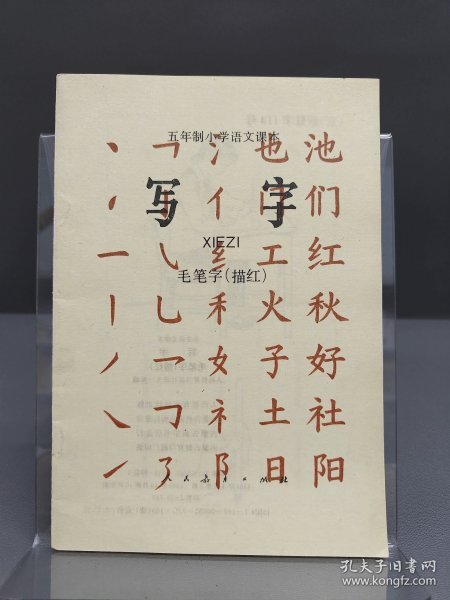 五年制小学语文课本
写字
XIEZI
毛笔字(描红)
丶 ㇖ 氵 也 池
亻 门 们
一 ㇂ 纟 工 红
丨 乚 禾 火 秋
丿 乛 女 子 好
㇏ 𠃌 礻 土 社
㇀ 阝 日 阳
人民教育出版社
孔夫子旧书网
www.kongfz.com